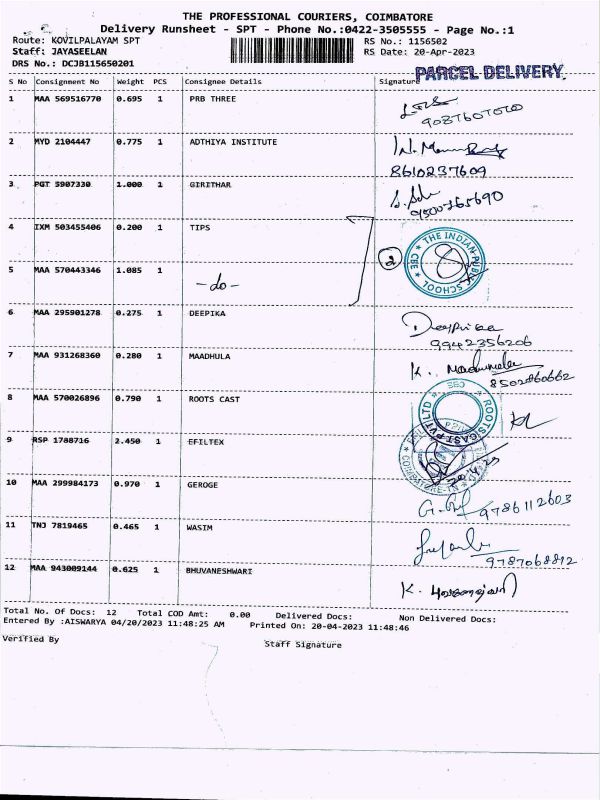 THE PROFESSIONAL COURIERS, COIMBATORE
Delivery Runsheet - SPT - Phone No.:0422-3505555 - Page No.:1
Route: KOVILPALAYAM SPT RS No.: 1156502
Staff: JAYASEELAN RS Date: 20-Apr-2023
DRS No.: DCJB115650201
PARCEL DELIVERY.
S No Consignment No Weight PCS Consignee Details Signature
1 MAA 569516770 0.695 1 PRB THREE
2 MYD 2104447 0.775 1 ADTHIYA INSTITUTE
8610237609
3 PGT 5907330 1.000 1 GIRITHAR
9500765690
4 IXM 503455406 0.200 1 TIPS
2 THE INDIAN PUBLIC SCHOOL * CBE *
5 MAA 570443346 1.085 1 -do-
6 MAA 295901278 0.275 1 DEEPIKA Deepika
9942356206
7 MAA 931268360 0.280 1 MAADHULA K.
8502860662
8 MAA 570026896 0.790 1 ROOTS CAST
ROOTS CAST PVT LTD * CBE *
9 RSP 1788716 2.450 1 EFILTEX
10 MAA 299984173 0.970 1 GEROGE
9786112603
11 TNJ 7819465 0.465 1 WASIM
9787068812
12 MAA 943009144 0.625 1 BHUVANESHWARI K. புவனேஷ்வரி
Total No. Of Docs: 12 Total COD Amt: 0.00 Delivered Docs: Non Delivered Docs:
Entered By :AISWARYA 04/20/2023 11:48:25 AM Printed On: 20-04-2023 11:48:46
Verified By Staff Signature